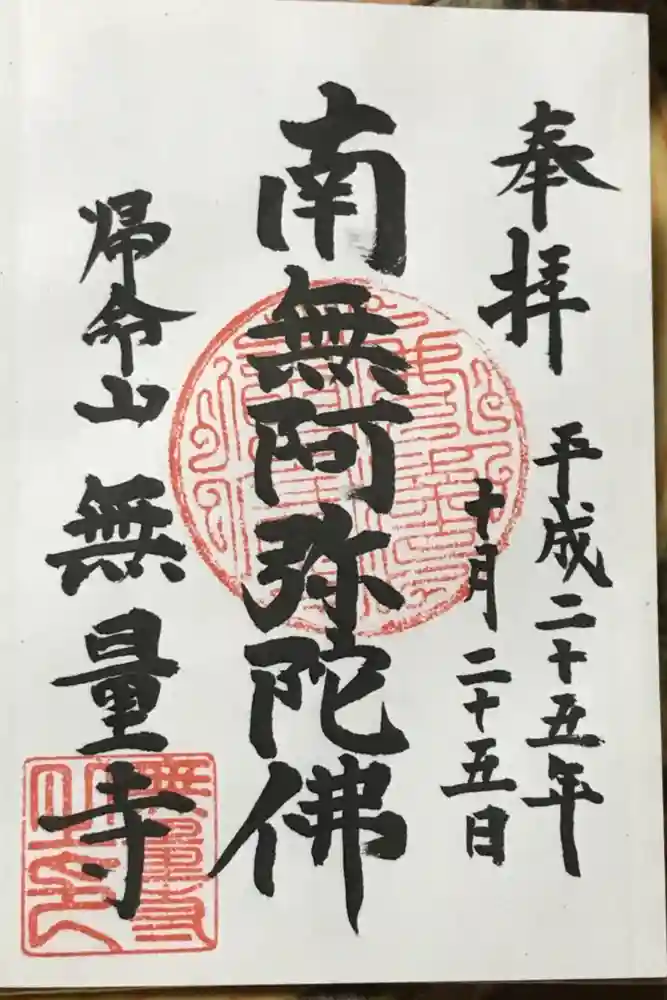 奉拝
平成二十五年
十月二十五日
南無阿弥陀佛
帰命山 無量寺